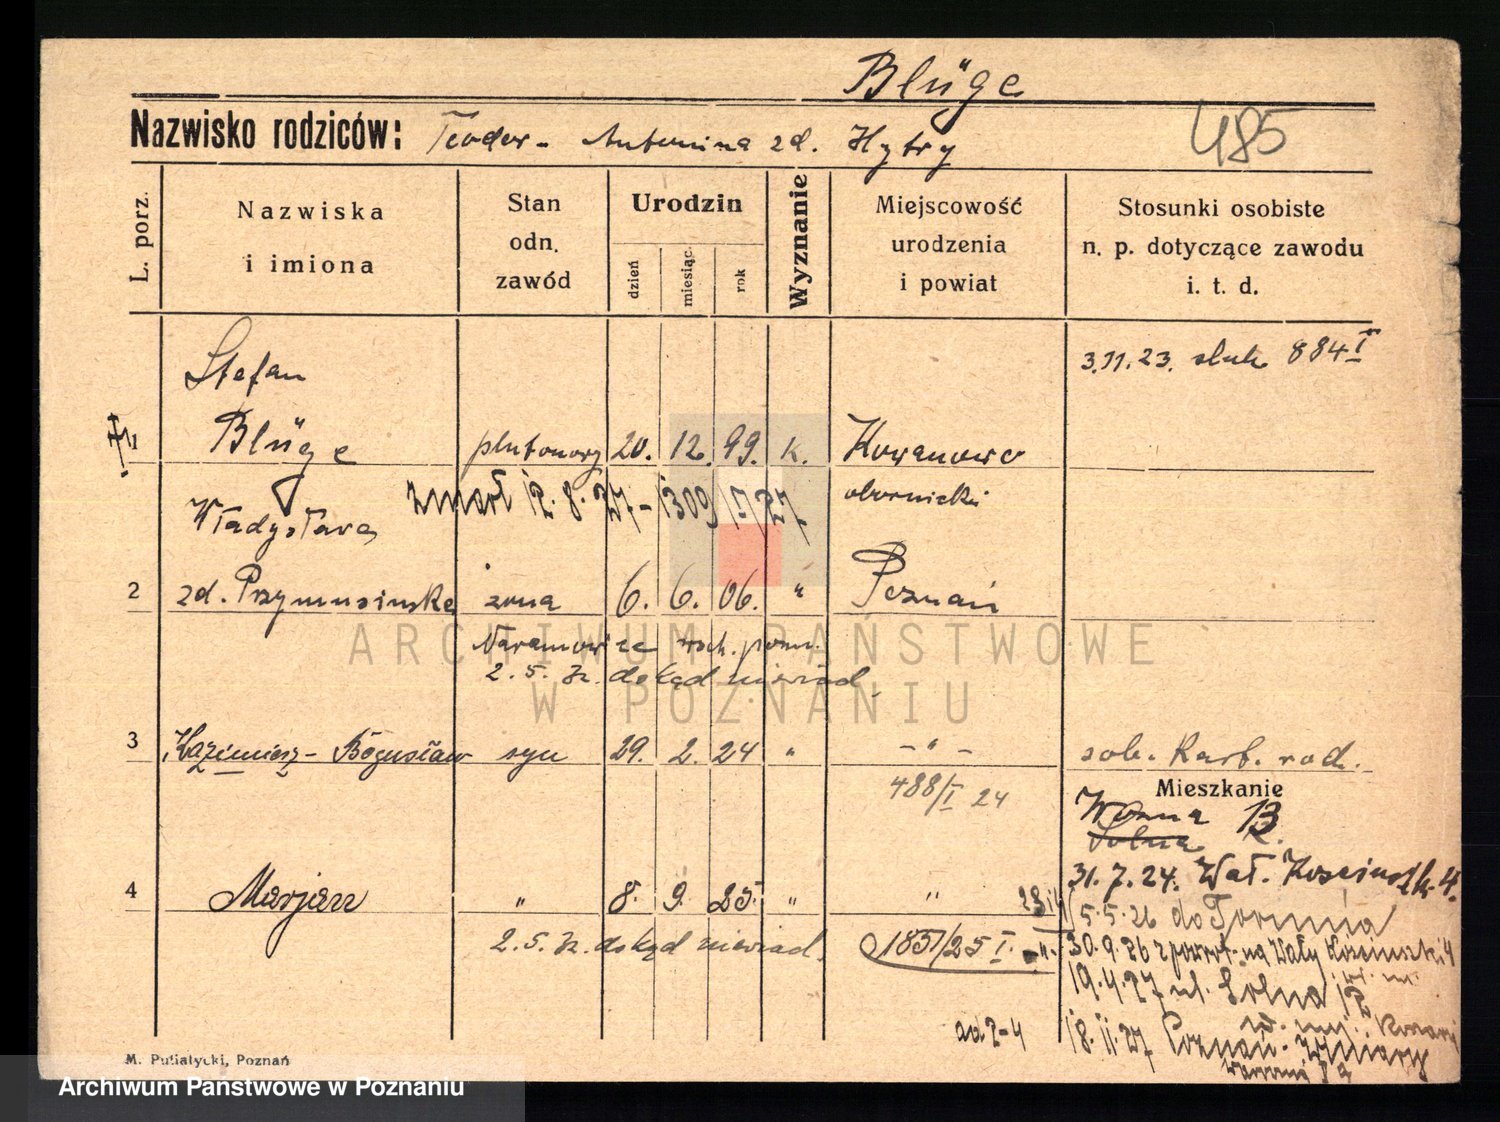 Blüge
Nazwisko rodziców: Teodor - Antonina zd. Hytry
485
L. porz.
Nazwiska
i imiona
Stan
odn.
zawód
Urodzin
dzień
miesiąc
rok
Wyznanie
Miejscowość
urodzenia
i powiat
Stosunki osobiste
n. p. dotyczące zawodu
i. t. d.
Stefan 3.11.23. ślub 884 I
1 Blüge plutonowy 20. 12. 99. k. Kowanowo
zmarł 12.8.27 - 1309/I/27 obornicki
Władysława
2 zd. Przymusinska żona 6. 6. 06. " Poznań
Naramowice
2. 5. dokąd niewiad.
ARCHIWUM PAŃSTWOWE
W POZNANIU
3 Kazimierz - Bogusław syn 29. 2. 24 " - " -
488/I 24
Mieszkanie
Woźna 13
Solna
4 Marjan " 8. 9. 25. " "
31. 7. 24. Wał. Kościuszk. 4.
5.5.26 do Torunia
2. 5. dokąd niewiad. 1851/25 I.
30.9.26 z powrot. na Wały Kościuszki 4
19.4.27 ul. Solna 12
ad 2-4 18.11.27 Poznań -
M. Putiatycki, Poznań
Archiwum Państwowe w Poznaniu